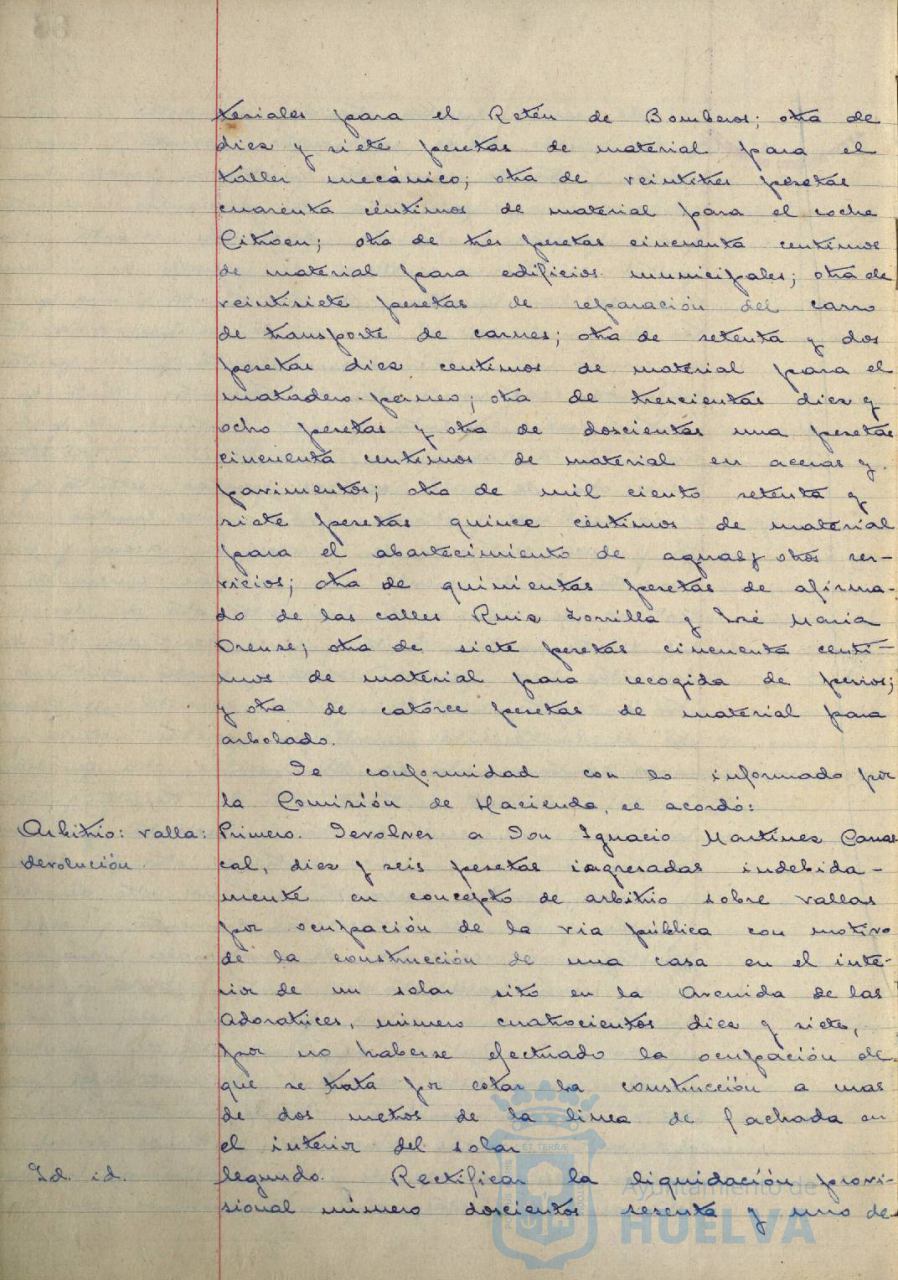 teriales para el Retén de Bomberos; otra de
diez y siete pesetas de material para el
taller mecánico; otra de veintitres pesetas
cuarenta céntimos de material para el coche
Citroen; otra de tres pesetas cincuenta centimos
de material para edificios municipales; otra de
veintisiete pesetas de reparación del carro
de transporte de carnes; otra de setenta y dos
pesetas diez centimos de material para el
matadero-perneo; otra de trescientas diez y
ocho pesetas y otra de doscientas una pesetas
cincuenta centimos de material en aceras y
pavimentos; otra de mil ciento setenta y
siete pesetas quince céntimos de material
para el abastecimiento de aguas y otros ser-
vicios; otra de quinientas pesetas de afirma-
do de las calles Ruiz Zorrilla y José Maria
Orense; otra de siete pesetas cincuenta centi-
mos de material para recogida de perros;
y otra de catorce pesetas de material para
arbolado.
De conformidad con lo informado por
la Comisión de Hacienda, se acordó:
Arbitrio: valla: Primero. Devolver a Don Ignacio Martínez
devolución. cal, diez y seis pesetas ingresadas indebida-
mente en concepto de arbitrio sobre vallas
por ocupación de la via pública con motivo
de la construcción de una casa en el inte-
rior de un solar sito en la Avenida de las
Adoratrices, número cuatrocientos diez y siete,
por no haberse efectuado la ocupación de
que se trata por estar la construcción a mas
de dos metros de la linea de fachada en
el interior del solar
Id. id. Segundo. Rectificar la liquidación provi-
sional número doscientos sesenta y uno de
Ayuntamiento de
HUELVA